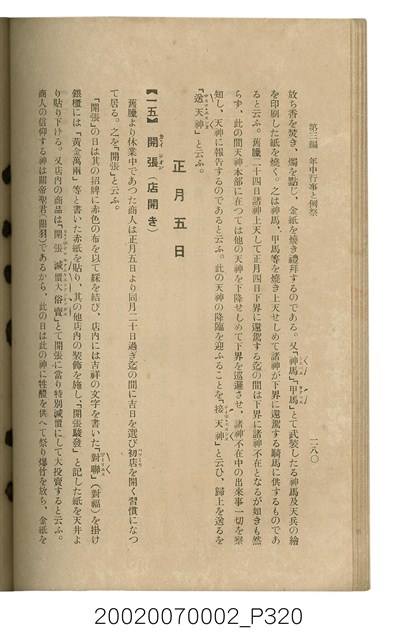 第三編　年中行事と例祭　　二八〇
放ち香を焚き、燭を點し、金紙を燒き禮拜するのである。又「神馬」「甲馬」とて武裝したる神馬及天兵の繪
を印刷した紙を燒く。之は神馬、甲馬等を燒き上天せしめて諸神が下界に還駕する騎馬に供するものであ
ると云ふ。舊臘二十四日諸神上天して正月四日下界に還駕する迄の間は下界に諸神不在となるが如きも然
らず、此の間天神本部に在つては他の天神を下降せしめて下界を巡邏させ、諸神不在中の出來事一切を察
知し、天神に報告するのであると云ふ。此の天神の降臨を迎ふることを「接天神」と云ひ、歸上を送るを
「送天神」と云ふ。
正月五日
【一五】開張（店開き）
舊臘中より休業中であつた商人は正月五日より同月二十日過ぎ迄の間に吉日を選び初店を開く習慣になつ
て居る。之を「開張」と云ふ。
「開張」の日は其の招牌に赤色の布を以て綵を結び、店內には吉祥の文字を書いた「對聯」（對福）を掛け
銀櫃には「黃金萬兩」等と書いた赤紙を貼り、其の他店內の裝飾を施し、「開張駿發」と記した紙を天井よ
り貼り下げる。又店內の商品は「開張減價大俗賣」とて開張に當り特別減價にして大投賣すると云ふ。
商人の信仰する神は關帝聖君（關羽）であるから、此の日は此の神に牲醴を供へて祭り爆竹を放ち、金紙を
20020070002_P320